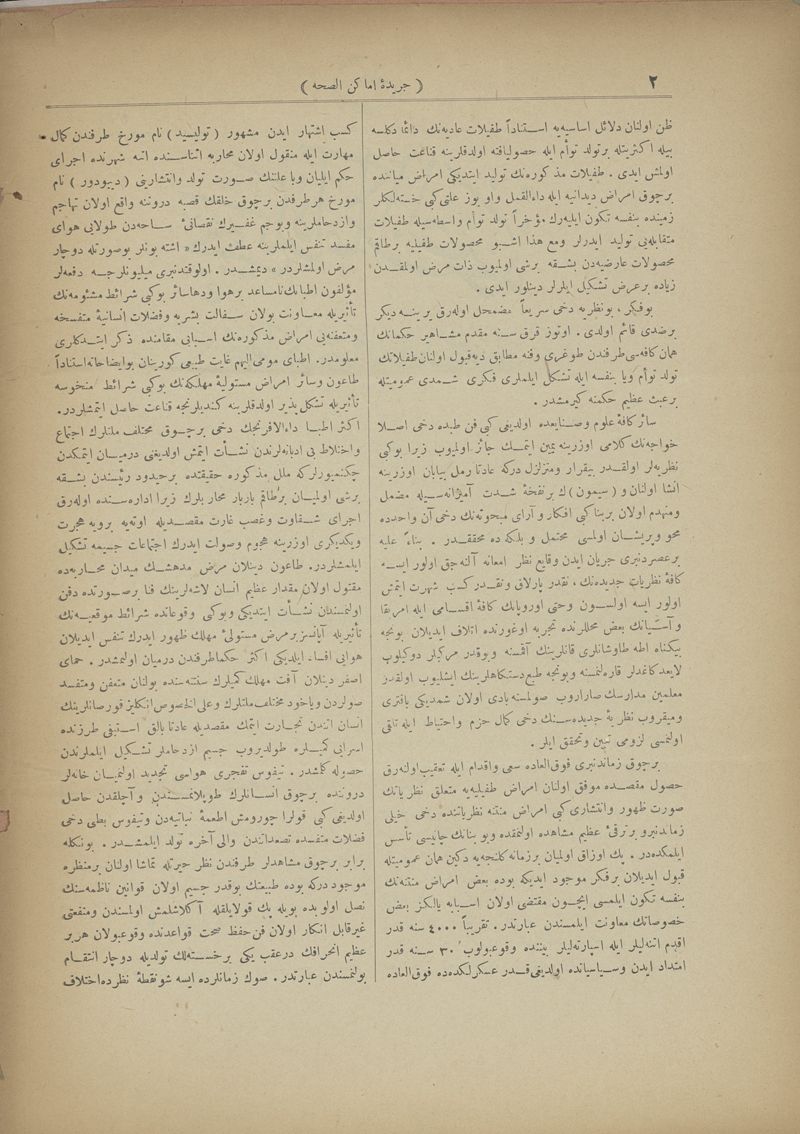 ٢
( جریدهٔ اماکن الصحه )
ظن اولنان دلائل اساسیه‌یه استناداً طفیلات عادیه‌نك دائما دکلسه
بیله اکثریتله برتولد توأم ایله حصولیافته اولدقلرینه قناعت حاصل
اولمش ایدی . طفیلات مذکوره‌نك تولید ایتدیکی امراض میاننده
برچوق امراض دیدانیه ایله داءالقمل واویوز علتی کبی خسته‌لکلر
زمینده بنفسه تکون ایله‌رك مؤخراً تولد توأم واسطه‌سیله طفیلات
متقابله‌یی تولید ایدرلر ومع هذا اشبو محصولات طفیلیه برطاقم
محصولات عارضیه‌دن بشقه برشی اولمیوب ذات مرض اولمقدن
زیاده برعرض تشکیل ایلرلر دینلور ایدی .
بوفکر ، بونظریه دخی سریعاً مضمحل اوله‌رق یرینه دیکر
برضدی قائم اولدی . اوتوز قرق سنه مقدم مشاهیر حکمانك
همان کافه‌سی طرفندن طوغری وفنه مطابق دیه‌قبول اولنان طفیلاتك
تولد توأم ویا بنفسه ایله تشکل ایلملری فکری شمدی عمومیتله
برعبث عظیم حکمنه کیرمشدر .
سائر کافهٔ علوم وصنایعده اولدیغی کبی فن طبده دخی اصلا
خواجه‌نك کلامی اوزرینه یمین ایتمك جائز اولمیوب زیرا بوکبی
نظریه‌لر اولقدر بیقرار ومتزلزل درکه عادتا رمل بیابان اوزرینه
انشا اولنان و ( سیمون ) ك برنفخهٔ شدت آمیزانه‌سیله مضمحل
ومنهدم اولان بربنا کبی افکار و آرای مبحوثه‌نك دخی آن واحدده
محو وپریشان اولسی محتمل وبلکه ده محققدر . بناءً علیه
برعصردنبری جریان ایدن وقایع نظر امعانه آلنه‌جق اولور ایسه
کافهٔ نظریات جدیده‌نك ، نقدر پارلاق ونقدر کسب شهرت ایتمش
اولور ایسه اولسون وحتی اوروپانك کافهٔ اقسامی ایله امریقا
وآسیانك بعض محللرنده تجربه اوغورنده اتلاف ایدیلان بونجه
بیکناه اطه طاوشانلری قانلرینك آقمسنه وبوقدر مرکبلر دوکیلوب
لایعد کاغدلر قاره‌لنمسنه وبونجه طبع دستکاهلرینك ایشلیوب اولقدر
معلمین مدارسك صاراروب صولمسنه‌بادی اولان شمدیکی باقتری
ومیقروب نظریهٔ جدیده‌سنك دخی کمال حزم واحتیاط ایله تلقی
اولنمسی لزومی تبین وتحقق ایلر .
برچوق زماندنبری فوق‌العاده سعی واقدام ایله تعقیب‌اوله‌رق
حصول مقصده موفق اولنان امراض طفیلیه‌یه متعلق نظریاتك
صورت ظهور وانتشاری کبی امراض منتنه نظریاتنده دخی خیلی
زماندنبرو برترقئ عظیم مشاهده اولنمقده وبوبنانك جانبسی تأسس
ایلمکده‌در . پك اوزاق اولمیان برزمانه کلنجه‌یه دکین همان عمومیتله
قبول ایدیلان برفکر موجود ایدیکه بوده بعض امراض منتنه‌نك
بنفسه تکون ایلمسی ایچون مقتضی اولان اسبابه یالکز بعض
خصوصاتك معاونت ایلمسندن عبارتدر . تقریباً ٤٠٠٠ سنه قدر
اقدم اتنه‌لیلر ایله اسپارته‌لیلر بیننده وقوعبولوب ٣٠ سنه قدر
امتداد ایدن وسیاسیاتده اولدیغی‌قدر عسکرلکده‌ده فوق‌العاده
کسب اشتهار ایدن مشهور ( تولیسید ) نام مورخ طرفندن کمال
مهارت ایله منقول اولان محاربه اثناسنده اتنه شهرنده اجرای
حکم ایلیان وبا علتنك صورت تولد وانتشارینی ( دیودور ) نام
مورخ هرطرفدن برچوق خلقك قصبه دروننه واقع اولان تهاجم
وازدحاملرینه وبوجم غفیرك نقصانئ ساحه‌دن طولایی هوای
مفسد تنفس ایلملرینه عطف ایدرك « اشته بونلر بوصورتله دوچار
مرض اولمشلردر » دیمشدر . اولوقتدنبری میلیونلرجه دفعه‌لر
مؤلفون اطبانك نامساعد برهوا ودهاسائر بوکبی شرائط مشئومه‌نك
تأثیریله معاونت بولان سفالت بشریه وفضلات انسانیهٔ متفسخه
ومتعفنه‌یی امراض مذکوره‌نك اسبابی مقامنده ذکر ایتدکلری
معلومدر. اطبای مومی‌الیهم غایت طبیعی کورینان بوایضاحاته‌استناداً
طاعون وسائر امراض مستولیهٔ مهلکه‌نك بوکبی شرائط منحوسه
تأثیریله تشکل‌پذیر اولدقلرینه کندیلرنجه قناعت حاصل ایتمشلردر.
اکثر اطبا داءالافرنجك دخی برچوق مختلف ملتلرك اجتماع
واختلاط بی ادبانه‌لرندن نشأت ایتمش اولدیغنی درمیان ایتمکدن
چکنمیورلرکه ملل مذکوره حقیقتده برحیدود رئیسندن بشقه
برشی اولمیان برطاقم باربار محاربلرك زیرا اداره‌سنده اوله‌رق
اجرای شقاوت وغصب غارت مقصدیله اوته‌یه برویه هجرت
ویکدیکری اوزرینه هجوم وصولت ایدرك اجتماعات جسیمه تشکیل
ایلمشلردر. طاعون دینلان مرض مدهشك میدان محاربه‌ده
مقتول اولان مقدار عظیم انسان لاشه‌لرینك فنا برصورتده دفن
اولنمسندن نشأت ایتدیکی وبوکبی وقوعاتده شرائط موقعیه‌نك
تأثیریله آپانسز برمرض مستولئ مهلك ظهور ایدرك تنفس ایدیلان
هوایی افساد ایلدیکی اکثر حکماطرفندن درمیان اولنمشدر . حمای
اصفر دینلان آفت مهلك کمیلرك سنتنه‌سنده بولنان متعفن ومتفسد
صولردن ویاخود مختلف ملتلرك وعلی‌الخصوص انکلیز قورصانلرینك
انسان اتندن تجارت ایتمك مقصدیله عادتا بالق استیفی طرزنده
اسرایی کمیلره طولدیروب جسیم ازدحاملر تشکیل ایلملرندن
حصوله کلمشدر . تیفوس تفجری هواسی تجدید اولنمیان خانه‌لر
دروننده برچوق انسانلرك طوپلانمسندن وآچلقدن حاصل
اولدیغی کبی قولرا چورومش اطعمهٔ نباتیه‌دن وتیفوس بطنی دخی
فضلات متفسده تصعداتندن والی آخره تولد ایلمشدر . بونکله
برابر برچوق مشاهدلر طرفندن نظر حیرتله تماشا اولنان برمنظره
موجود درکه بوده طبیعتك بوقدر جسیم اولان قوانین ناظمه‌سنك
نصل اولوبده بویله پك قولایلقله آکلاشلمش اولمسندن ومنفعتی
غیرقابل انکار اولان فن حفظ صحت قواعدنده وقوعبولان هربر
عظیم انحرافك درعقب یکی برخسته‌لك تولدیله دوچار انتقام
بولنمسندن عبارتدر. صوك زمانلرده ایسه شونقطهٔ نظرده‌اختلاف